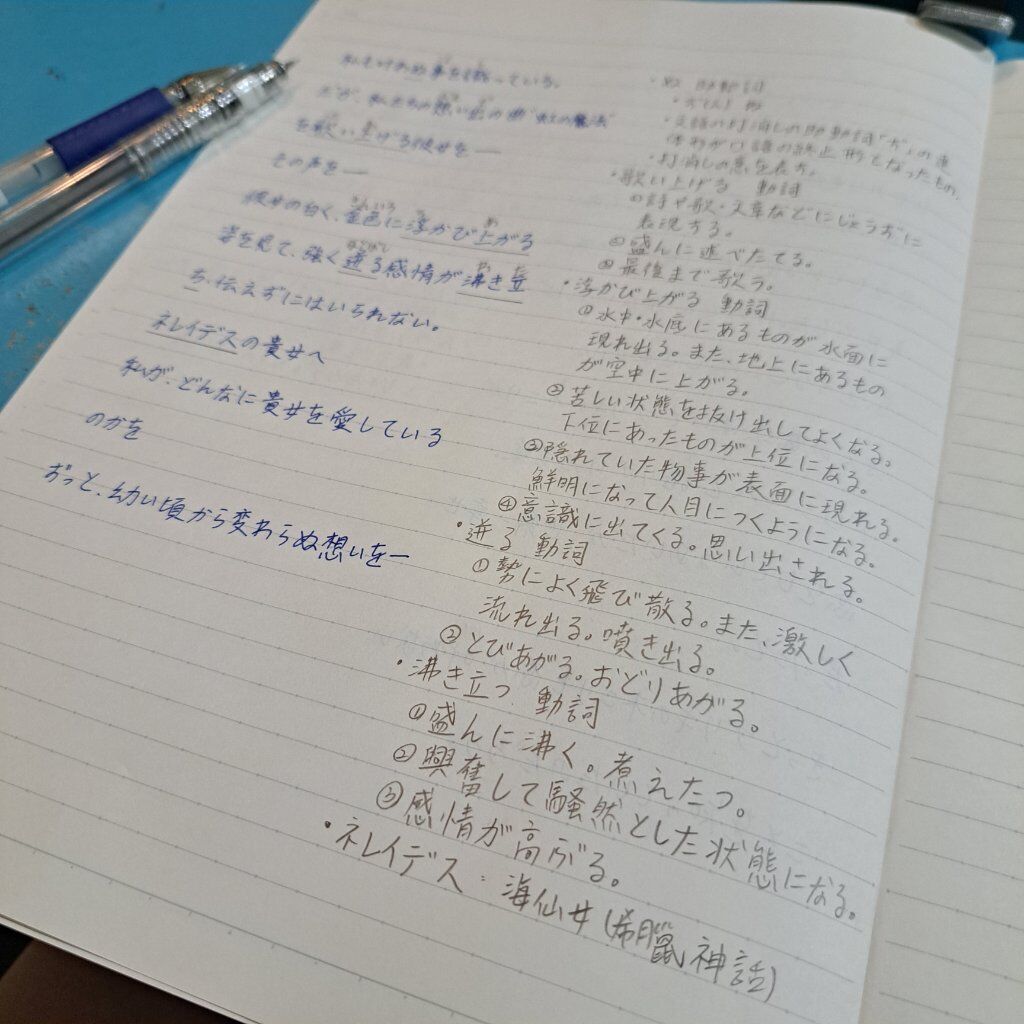 私もそのお事を識っている。
だが、私たちの想い出の曲“虹の魔法”
を歌い上げる彼女を—
その声を—
彼女の白く、金色に浮かび上がる
こんじき
姿を見て、強く迸る感情が沸き立
ほとばし
ち、伝えずにはいられない。
ネレイデスの貴女へ
私が、どんなに貴女を愛している
のかを
ずっと、幼い頃から変わらぬ想いを—
・ぬ 助動詞
・文語の打消しの助動詞「ず」の連
体形が口語の終止形となったもの。
・打消しの意を表す。
・歌い上げる 動詞
①詩や歌・文章などにじょうずに
表現する。
②盛んに述べたてる。
③最後まで歌う。
・浮かび上がる 動詞
①水中・水底にあるものが水面に
現れ出る。また、地上にあるもの
が空中に上がる。
②苦しい状態を抜け出してよくなる。
下位にあったものが上位になる。
③隠れていた物事が表面に現れる。
鮮明になって人目につくようになる。
④意識に出てくる。思い出される。
・迸る 動詞
①勢によく飛び散る。また、激しく
流れ出る。噴き出る。
②とびあがる。おどりあがる。
・沸き立つ 動詞
①盛んに沸く。煮えたつ。
②興奮して騒然とした状態になる。
③感情が高ぶる。
・ネレイデス：海仙女(希臘神話)